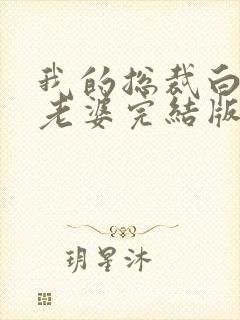 我的总裁白
老婆完结版
玥星沐